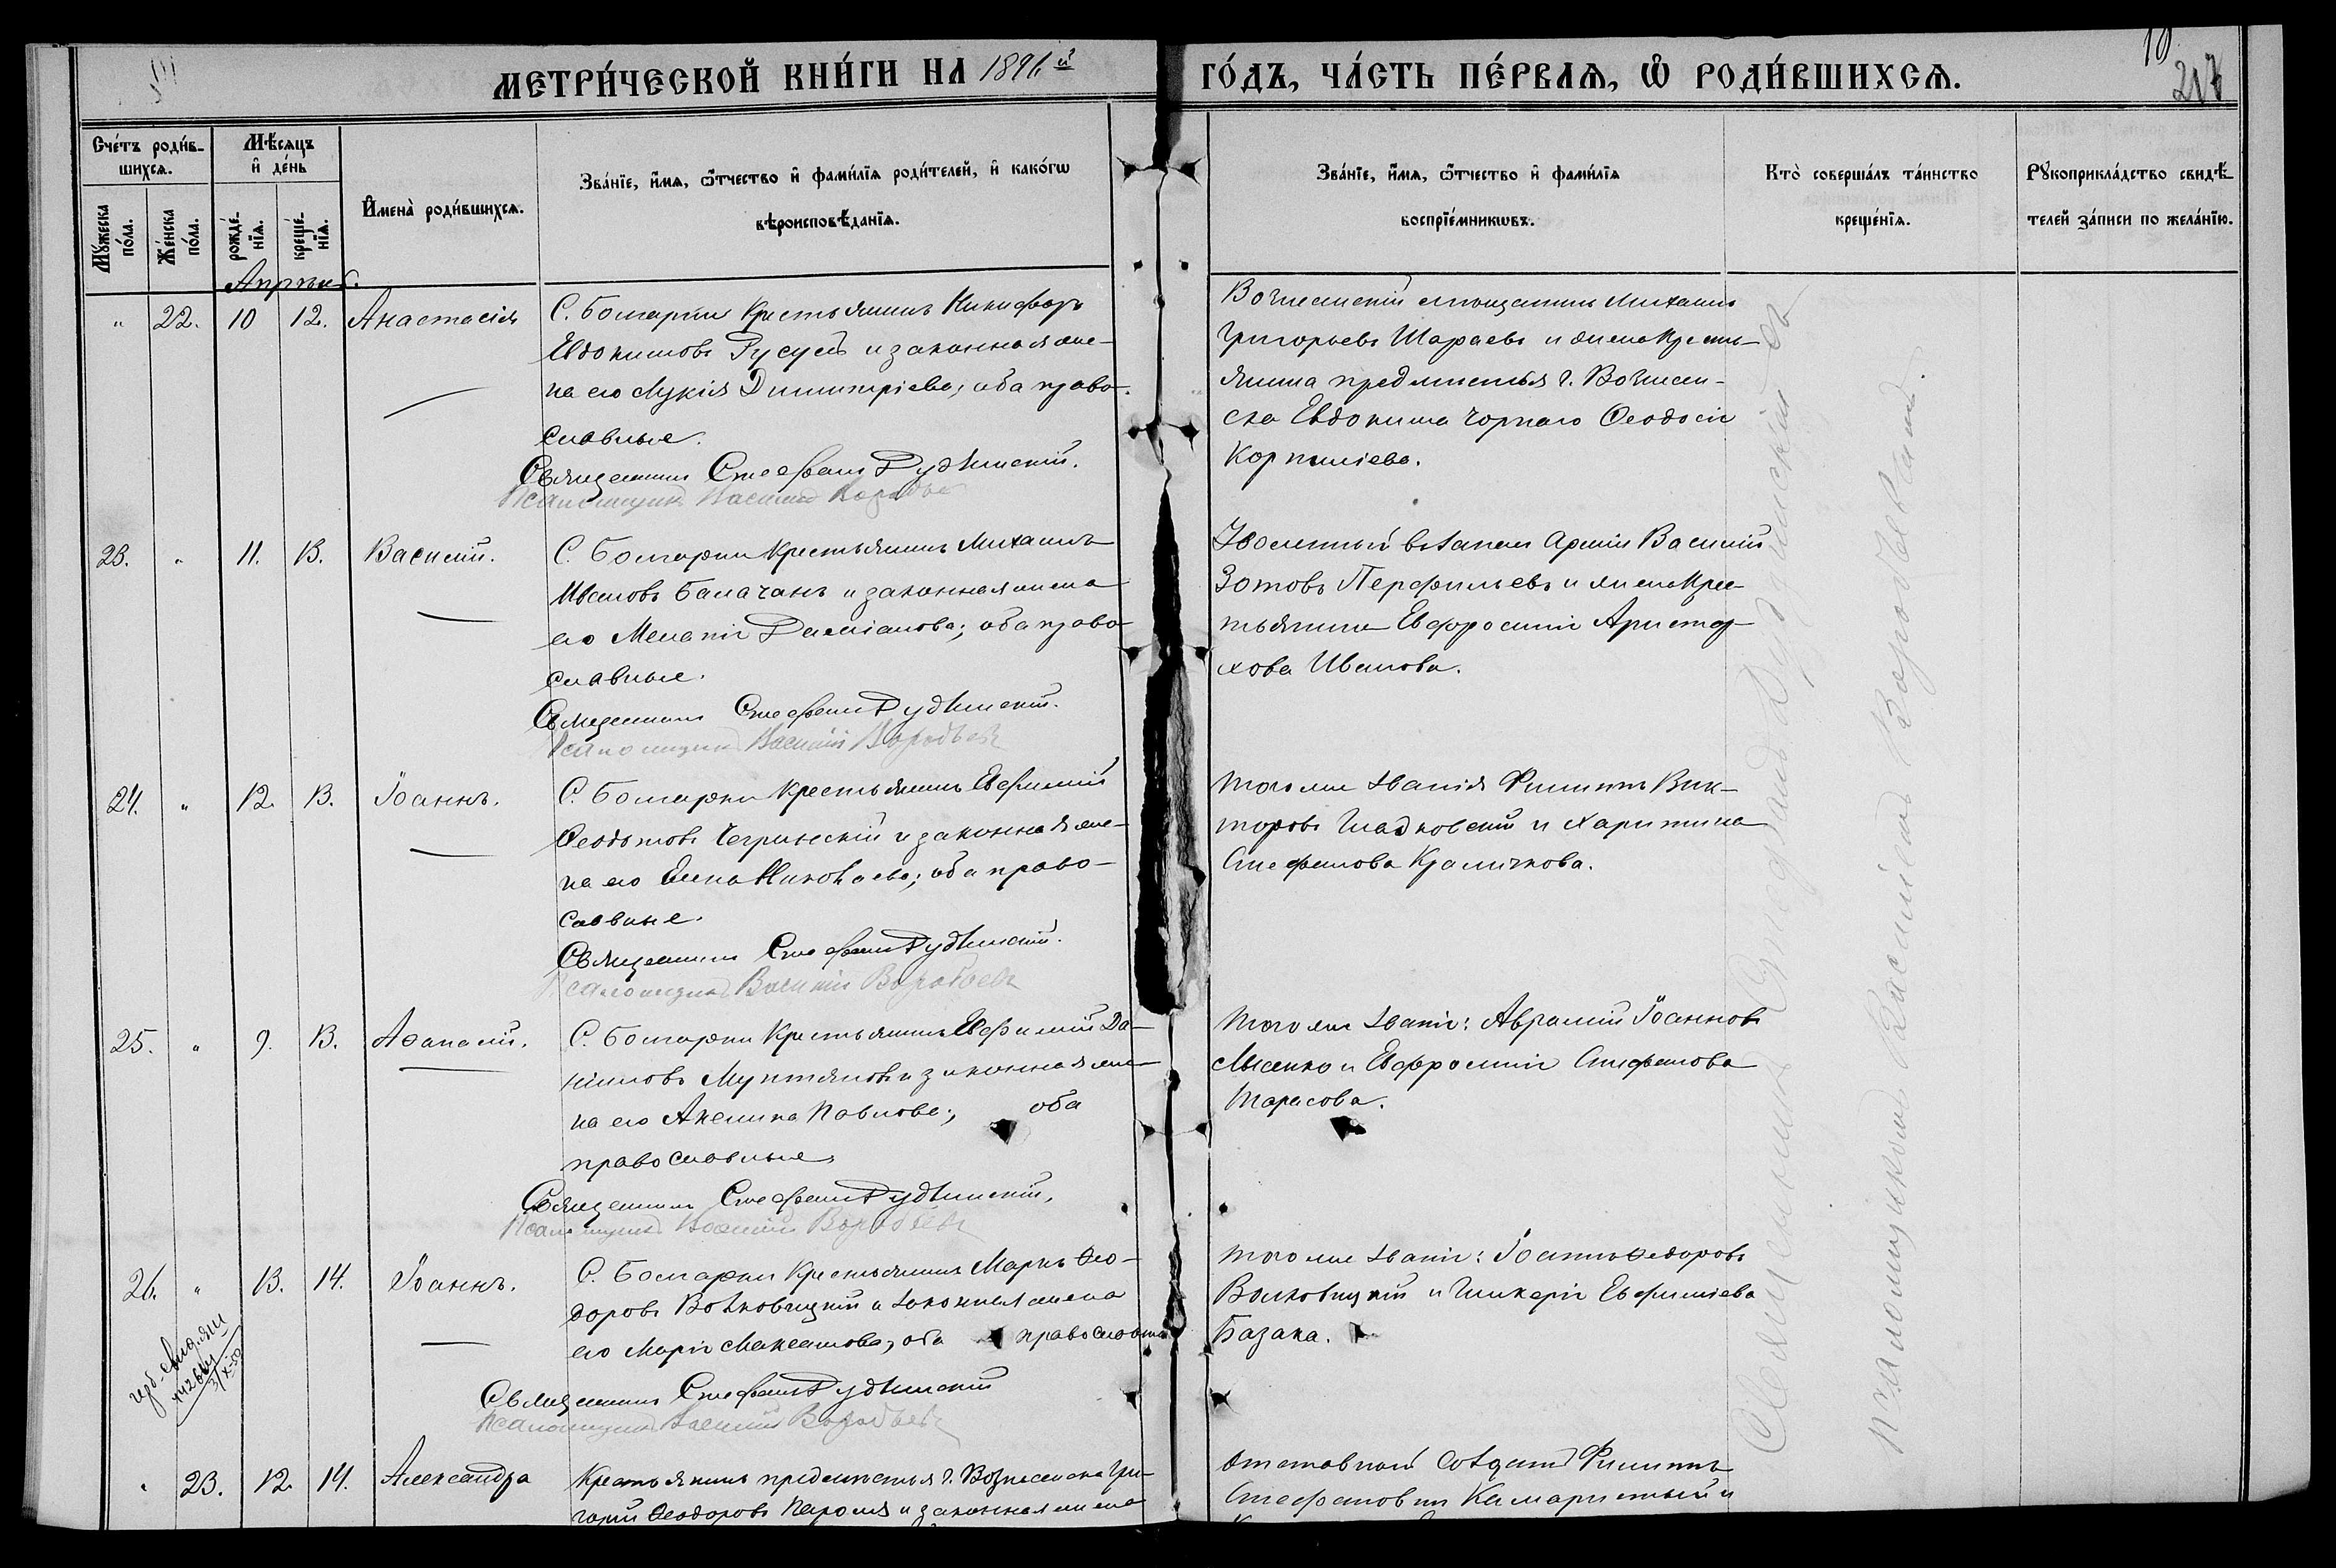 МЕТРИ́ЧЕСКОЙ КНИ́ГИ НА 1896й ГО́ДЪ, ЧА́СТЬ ПЕ́РВАЯ, Ѡ РОДИ́ВШИХСЯ.
10
217
Сче́тъ роди́в-
шихся.
Мѣ́сяцъ
и де́нь
Мꙋ́жеска
по́ла.
Же́нска
по́ла.
рожде́-
нїя.
креще́-
нїя.
Имена̀ роди́вшихся.
Зва́нїе, и́мя, ѻ́тчество и фами́лїя роди́телей, и како́гѡ
вѣроисповѣ́данїя.
Зва́нїе, и́мя, ѻ́тчество и фами́лїя
воспрїе́мникѡвъ.
Кто̀ соверша́лъ та́инство
креще́нїя.
Рꙋкоприкла́дство свидѣ́-
телей за́писи по жела́нїю.
Апрѣль.
" 22. 10 12. Анастасія
С. Болгарки крестьянинъ Никифоръ
Евдокимовъ Русулъ и законная же-
на его Лукія Димитріева; оба право-
славные.
Священникъ Стефанъ Рудѣнскій.
Псаломщикъ Василій Воробьев
Вознесенскій мѣщанинъ Михаилъ
Григорьевъ Шараевъ и жена кресть-
янина предмѣстья г. Вознесен-
ска Евдокима Чорнаго Феодосія
Корниліева.
23. " 11. 13. Василій.
С. Болгарки крестьянинъ Михаилъ
Ивановъ Балачанъ и законная жена
его Меланія Даміанова; оба право-
славные.
Священникъ Стефанъ Рудѣнскій.
Псаломщикъ Василій Воробьевъ
Уволенный въ запасъ арміи Василій
Зотовъ Перфильевъ и жена кре-
стьянина Евфросинія Аристар-
хова Иванова.
24. " 12. 13. Іоаннъ.
С. Болгарки крестьянинъ Евфимій
Феодотовъ Чегринскій и законная же-
на его Елена Николаева; оба право-
славные.
Священникъ Стефанъ Рудѣнскій.
Псаломщикъ Василій Воробьевъ
Того же званія Филиппъ Вик-
торовъ Гладковскій и Харитина
Стефанова Краличкова.
25. " 9. 13. Афанасій.
С. Болгарки крестьянинъ Евфимій Да-
ніиловъ Мунтяновъ и законная же-
на его Акелина Павлова; оба
православные.
Священникъ Стефанъ Рудѣнскій.
Псаломщикъ Василій Воробьевъ
Того же званія: Аврамій Іоанновъ
Лысенко и Евфросинія Стефанова
Тарасова.
26. " 13. 14. Іоаннъ.
С. Болгарки крестьянинъ Маркъ Фео-
доровъ Волковицкій и законная жена
его Марія Максимова, оба православные
Священникъ Стефанъ Рудѣнскій
Псаломщикъ Василій Воробьевъ
Того же званія: Іоаннъ Федоровъ
Волковицкій и Гликерія Евфиміева
Базака.
" 23. 12. 14. Александра
Крестьянинъ предмѣстья г. Вознесенска Гри-
горій Феодоровъ и законная жена
Отставной солдатъ Филиппъ
Стефановъ Камаристый и
Священникъ Стефанъ Рудѣнскій съ
псаломщикомъ Василіемъ Воробьевымъ.